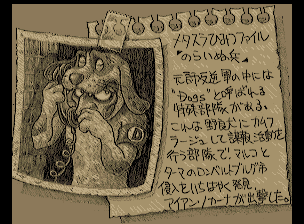 メタスラひみつファイル
"のらいぬ兵"
元帥反逆軍の中には
"Dogs"と呼ばれる
特殊部隊がある。
これは野良犬にカムフ
ラージュして諜報活動を
行う部隊で、マルコと
ターマのロンバルブルグ市
侵入をいちはやく発見、
アイアン・ノカーナが出撃した。